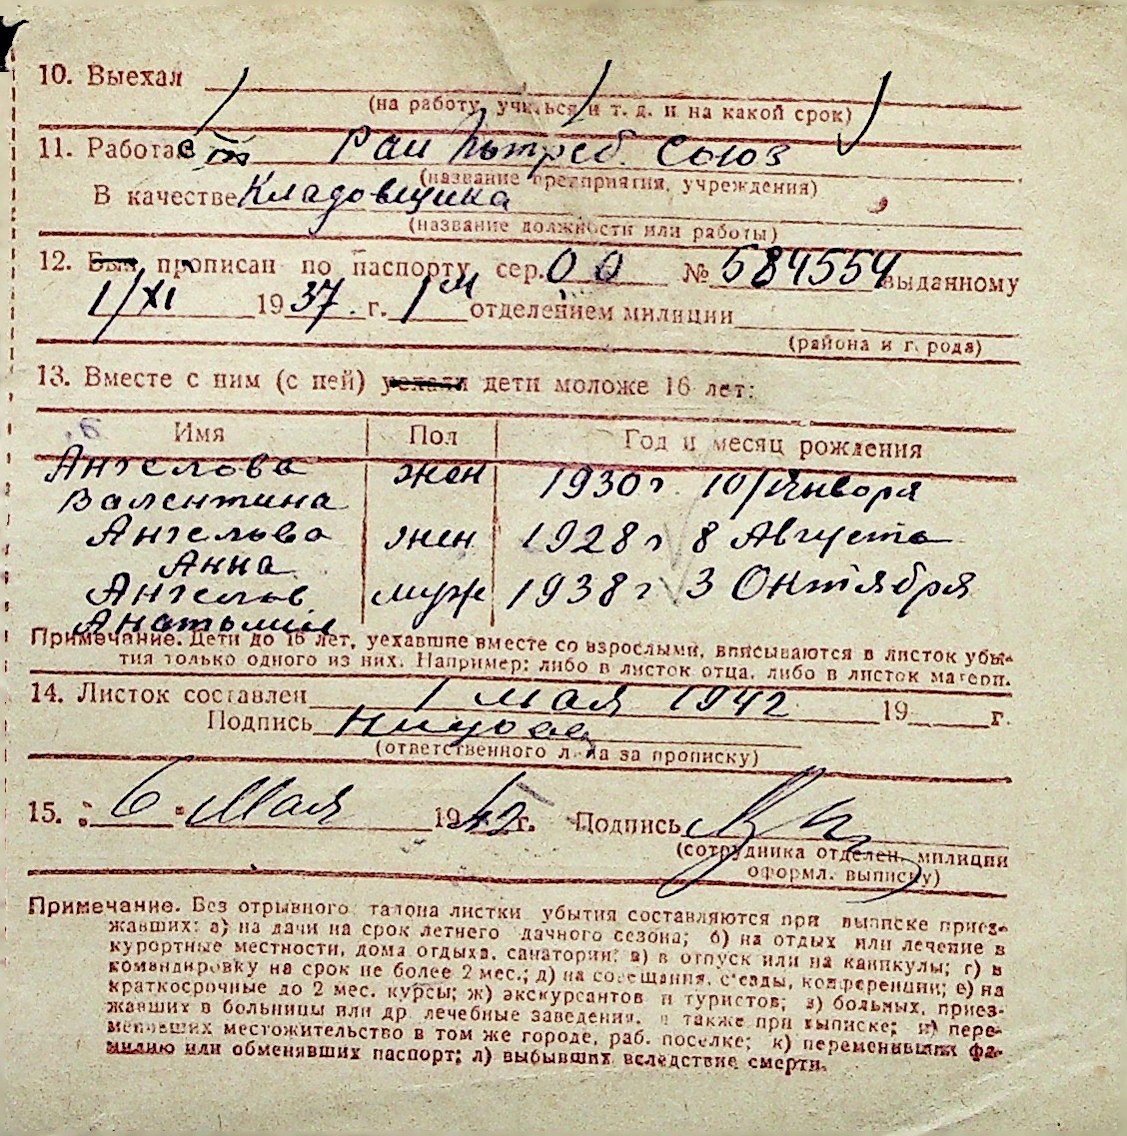 10. Выехал
(на работу, учиться и т. д. и на какой срок)
11. Работает Рай Потреб. Союз
(название предприятия, учреждения)
В качестве Кладовщика
(название должности или работы)
12. Был прописан по паспорту сер. 00 № 584554 выданному
1/XI 1937. г. 1м отделением милиции
(района и города)
13. Вместе с ним (с ней) уехали дети моложе 16 лет:
Имя Пол Год и месяц рождения
Ангелова жен 1930 г. 10/Января
Валентина
Ангелова жен 1928 г 8 Августа
Анна
Ангелов муж 1938 г 3 Октября
Анатолий
Примечание. Дети до 16 лет, уехавшие вместе со взрослыми, вписываются в листок убы-
тия только одного из них. Например: либо в листок отца, либо в листок матери.
14. Листок составлен 1 мая 1942 19 г.
Подпись
(ответственного лица за прописку)
15. " 6 " Мая 1942 г. Подпись
(сотрудника отделен. милиции
оформл. выписку)
Примечание. Без отрывного талона листки убытия составляются при выписке приез-
жавших: а) на дачи на срок летнего дачного сезона; б) на отдых или лечение в
курортные местности, дома отдыха, санатории; в) в отпуск или на каникулы; г) в
командировку на срок не более 2 мес.; д) на совещания, съезды, конференции; е) на
краткосрочные до 2 мес. курсы; ж) экскурсантов и туристов; з) больных, приез-
жавших в больницы или др. лечебные заведения, а также при выписке; и) пере-
менивших местожительство в том же городе, раб. поселке; к) переменивших фа-
милию или обменявших паспорт; л) выбывших вследствие смерти.